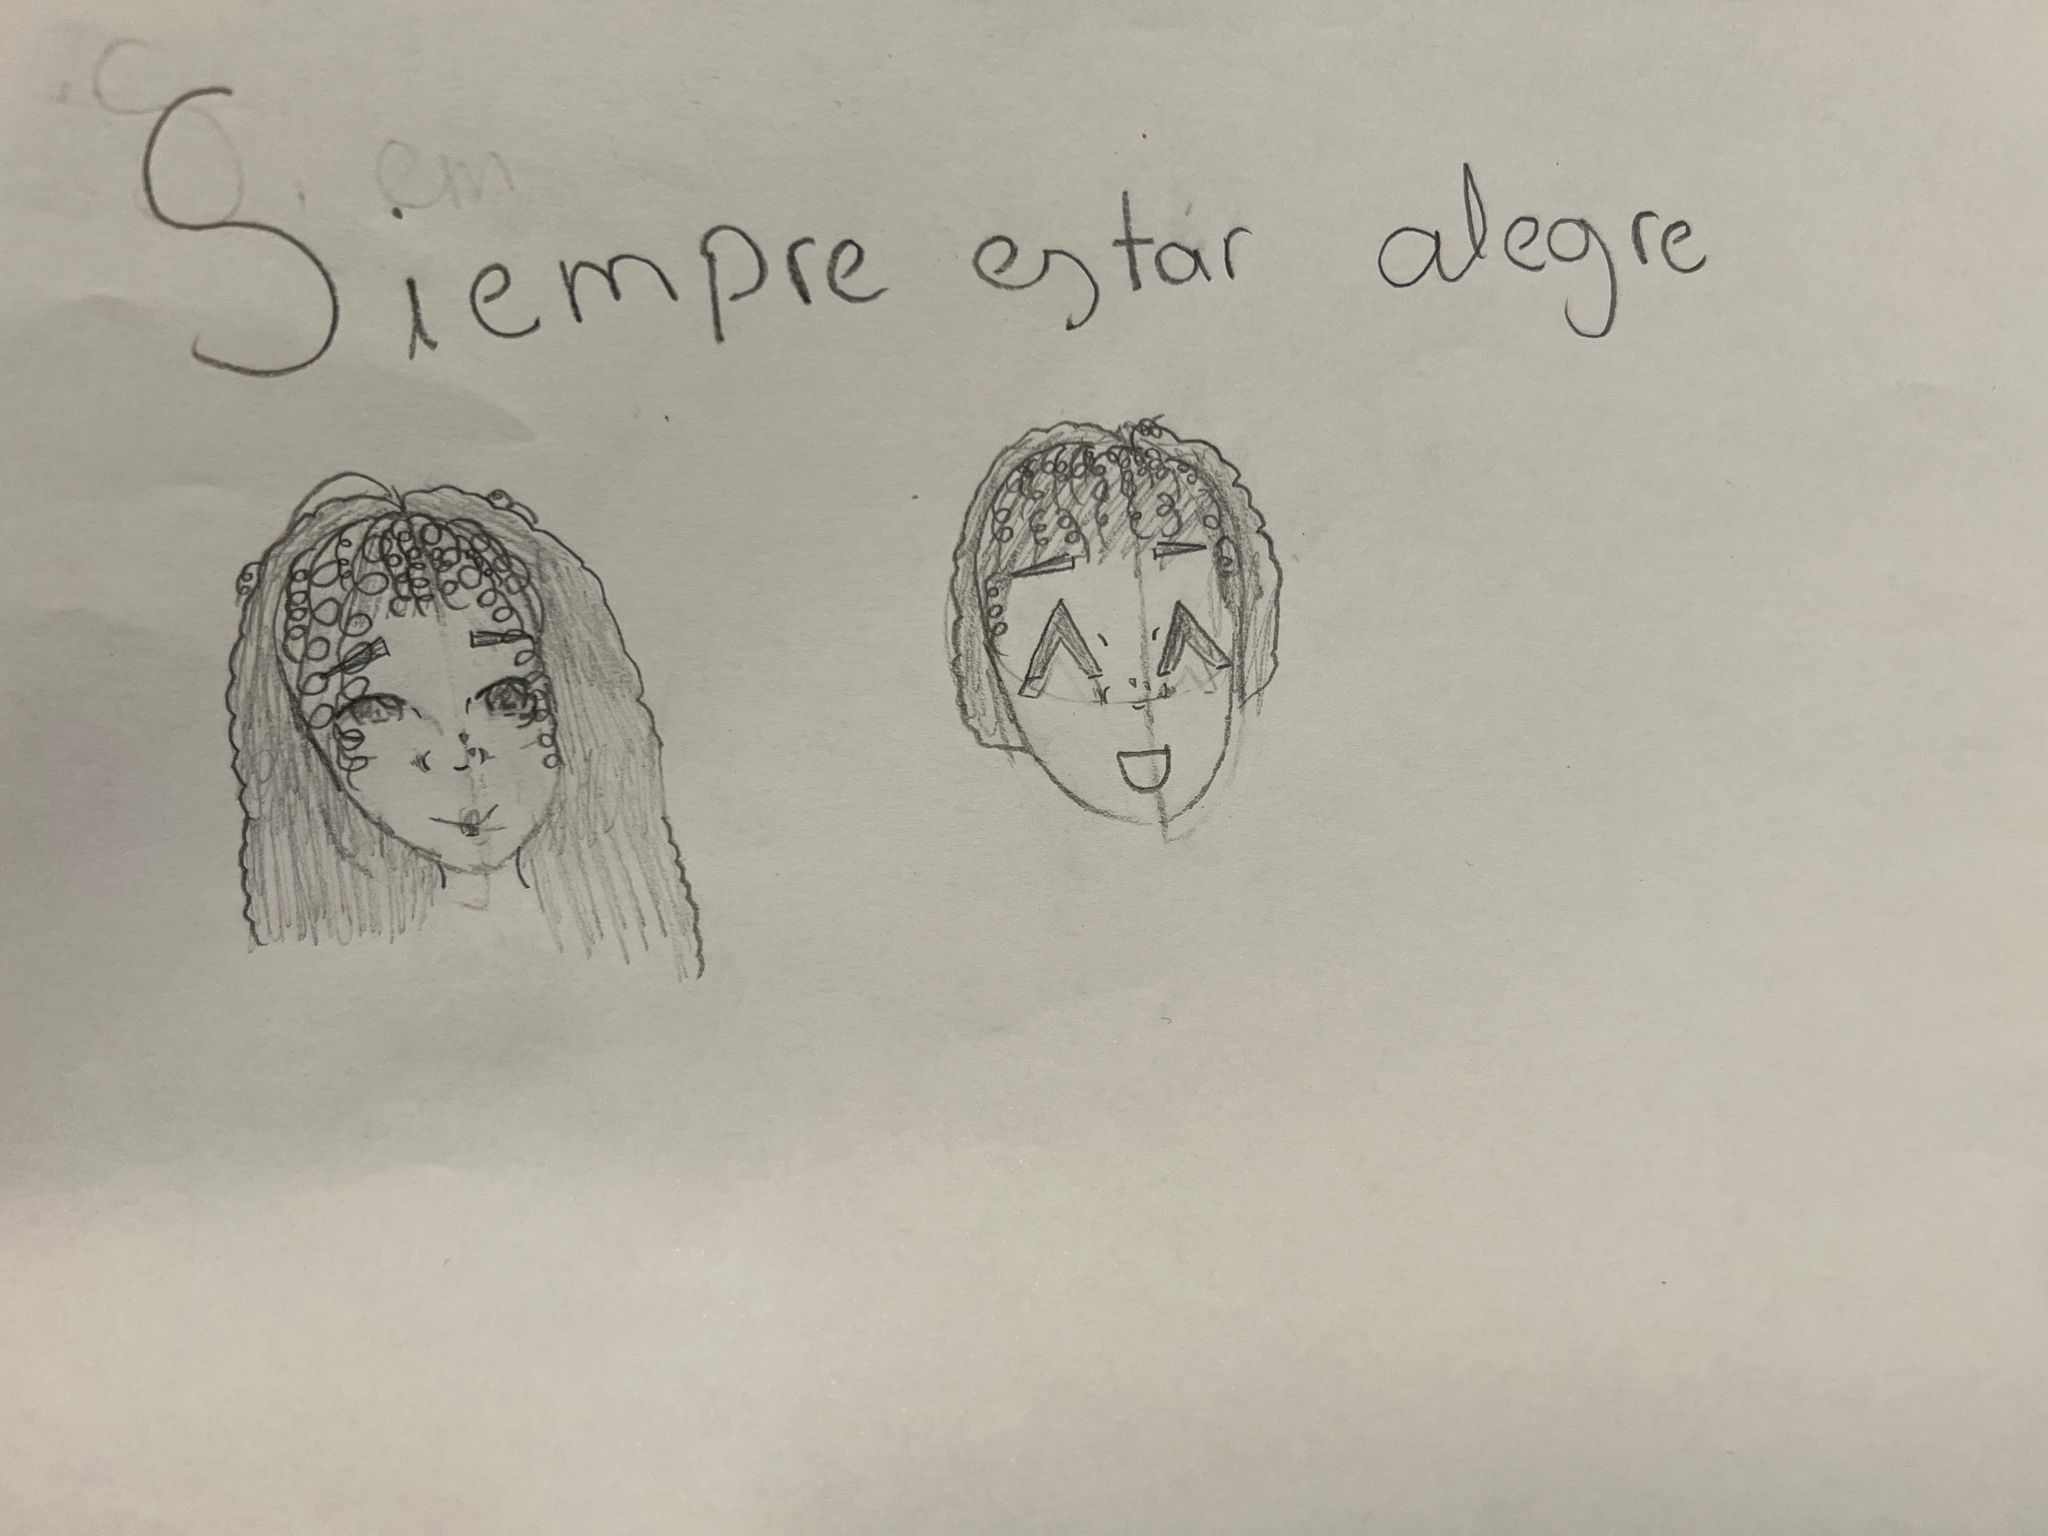 Siempre estar alegre